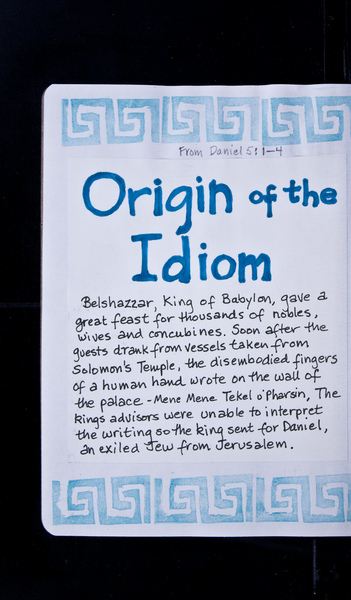 From Daniel 5:1-4
Origin of the
Idiom
Belshazzar, King of Babylon, gave a
great feast for thousands of nobles,
wives and concubines. Soon after the
guests drank from vessels taken from
Solomon's Temple, the disembodied fingers
of a human hand wrote on the wall of
the palace - Mene Mene Tekel o'pharsin, The
kings advisors were unable to interpret
the writing so the king sent for Daniel,
an exiled Jew from Jerusalem.